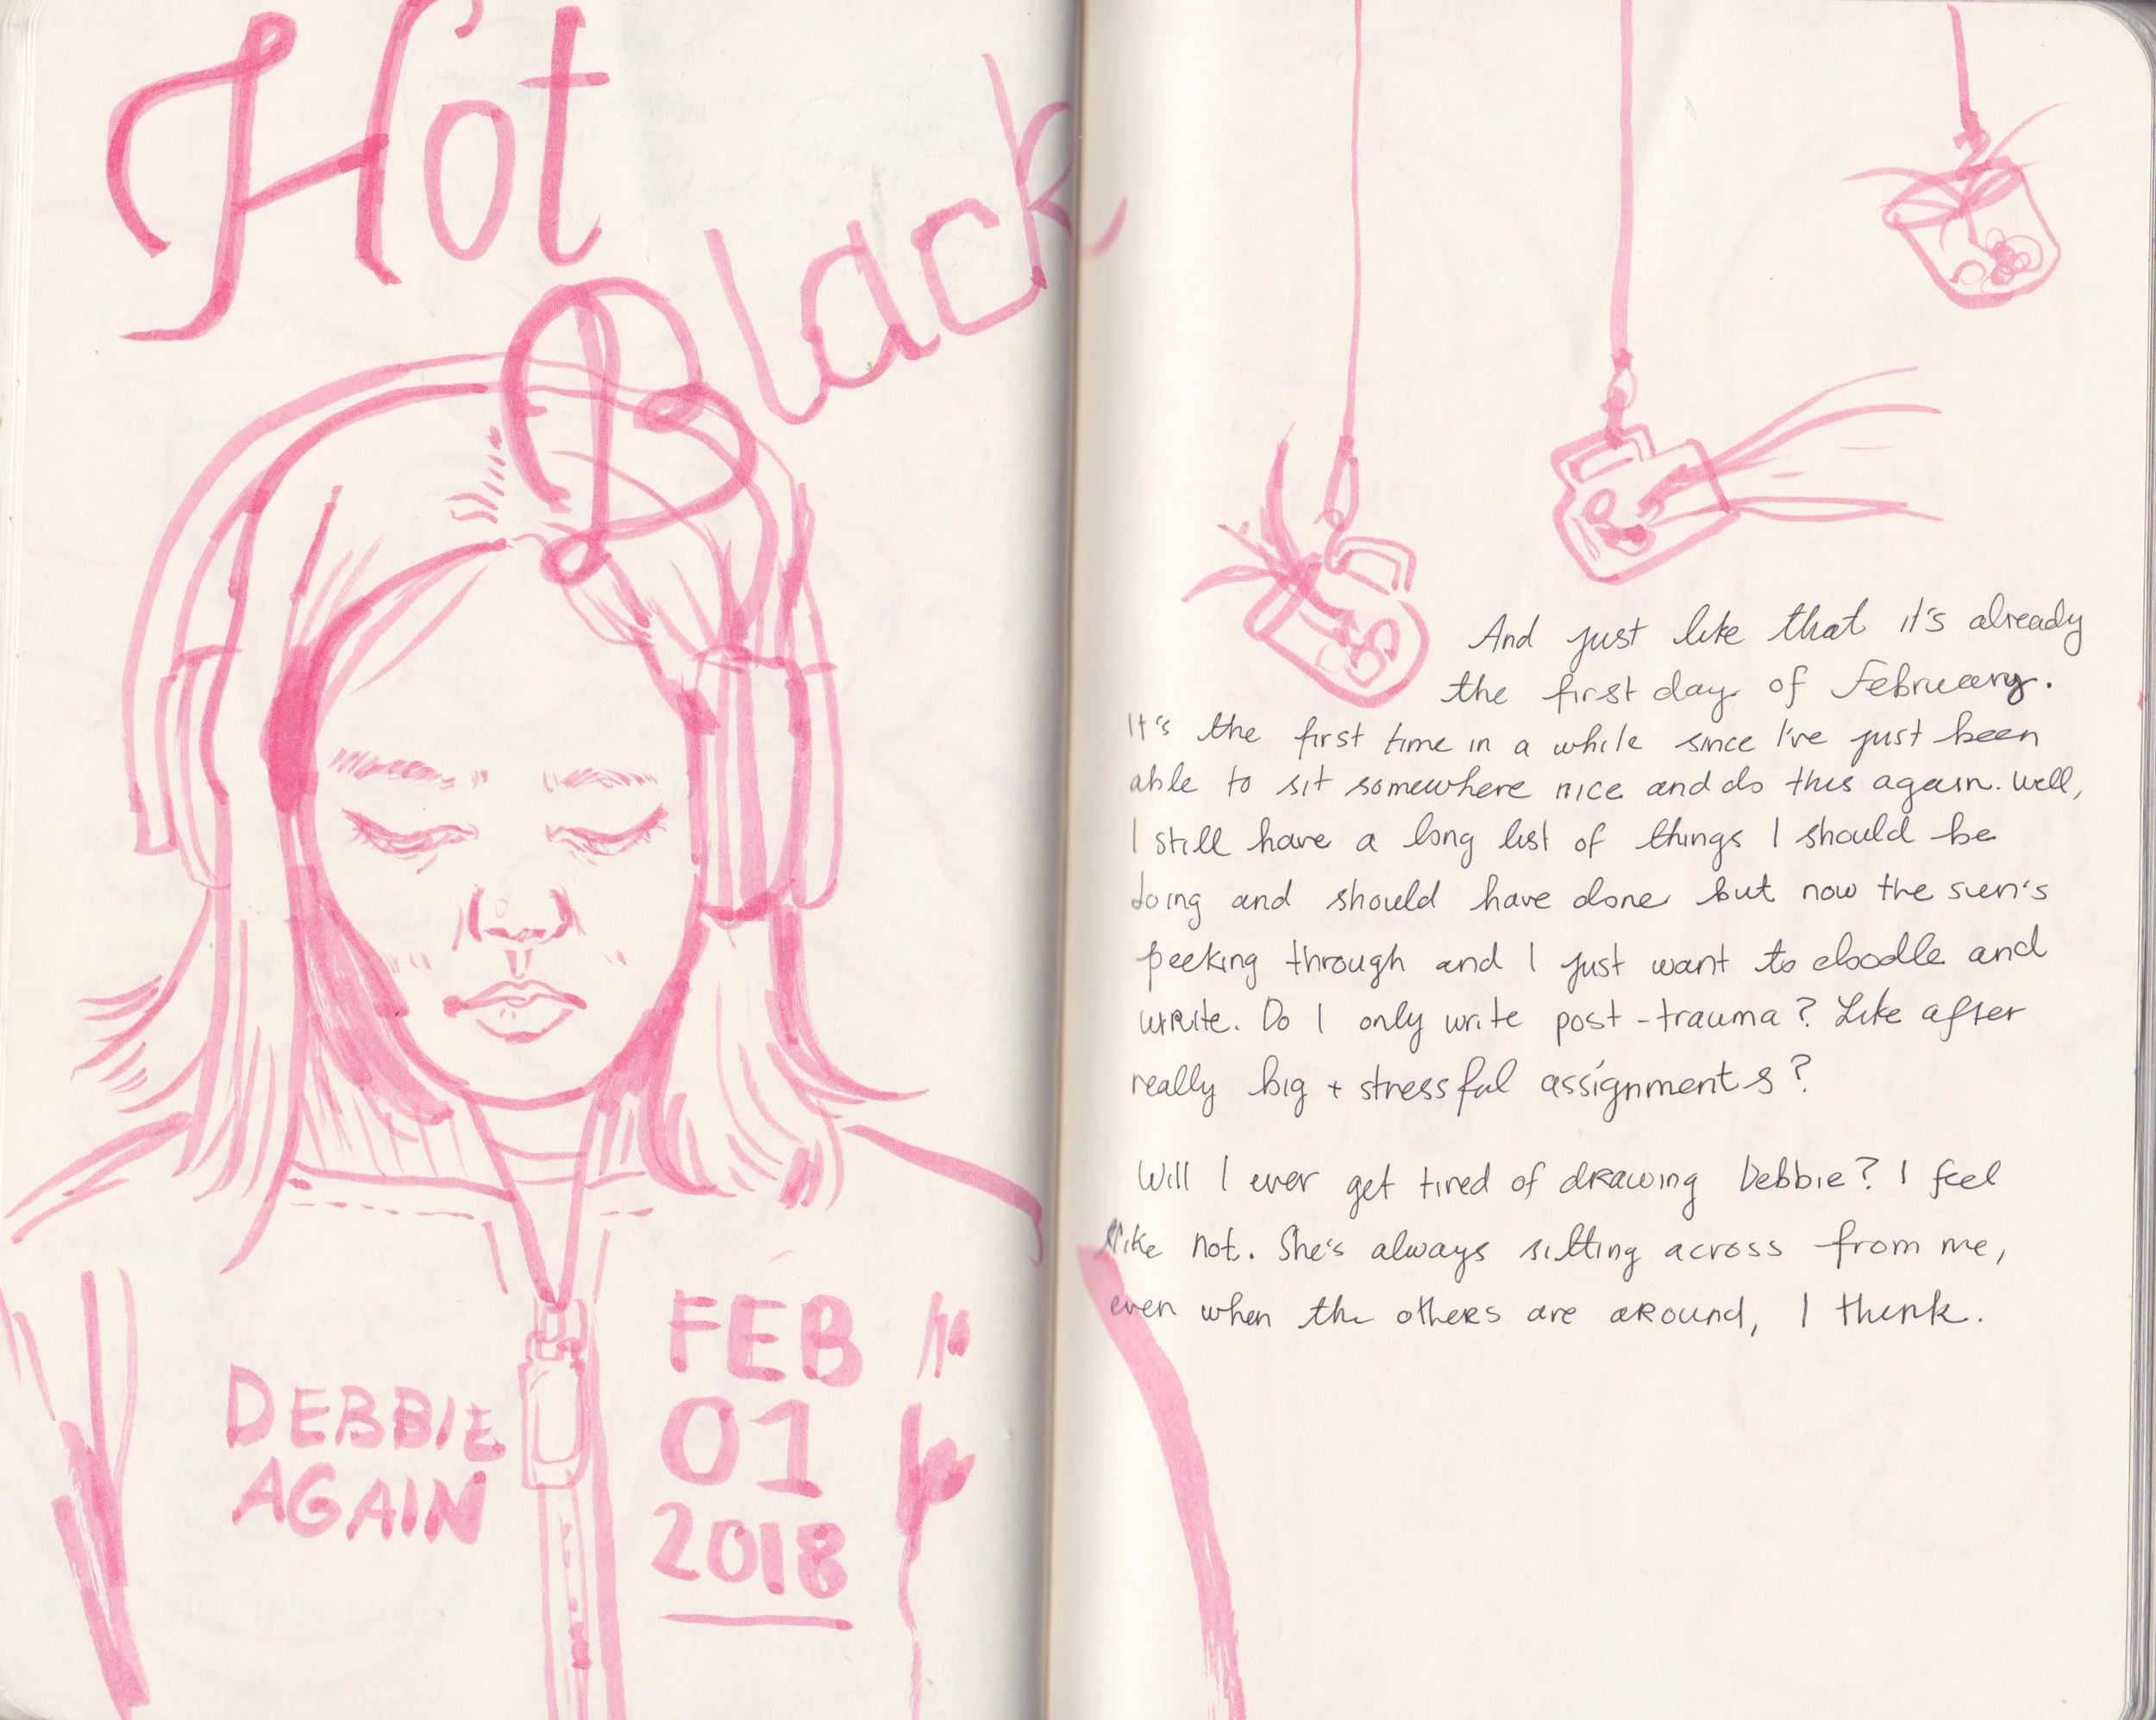 Hot
Black
DEBBIE
AGAIN
FEB
01
2018
And just like that it's already
the first day of February.
It's the first time in a while since I've just been
able to sit somewhere nice and do this again. Well,
I still have a long list of things I should be
doing and should have done but now the sun's
peeking through and I just want to doodle and
write. Do I only write post-trauma? Like after
really big + stressful assignments?
Will I ever get tired of drawing Debbie? I feel
like not. She's always sitting across from me,
even when the others are around, I think.